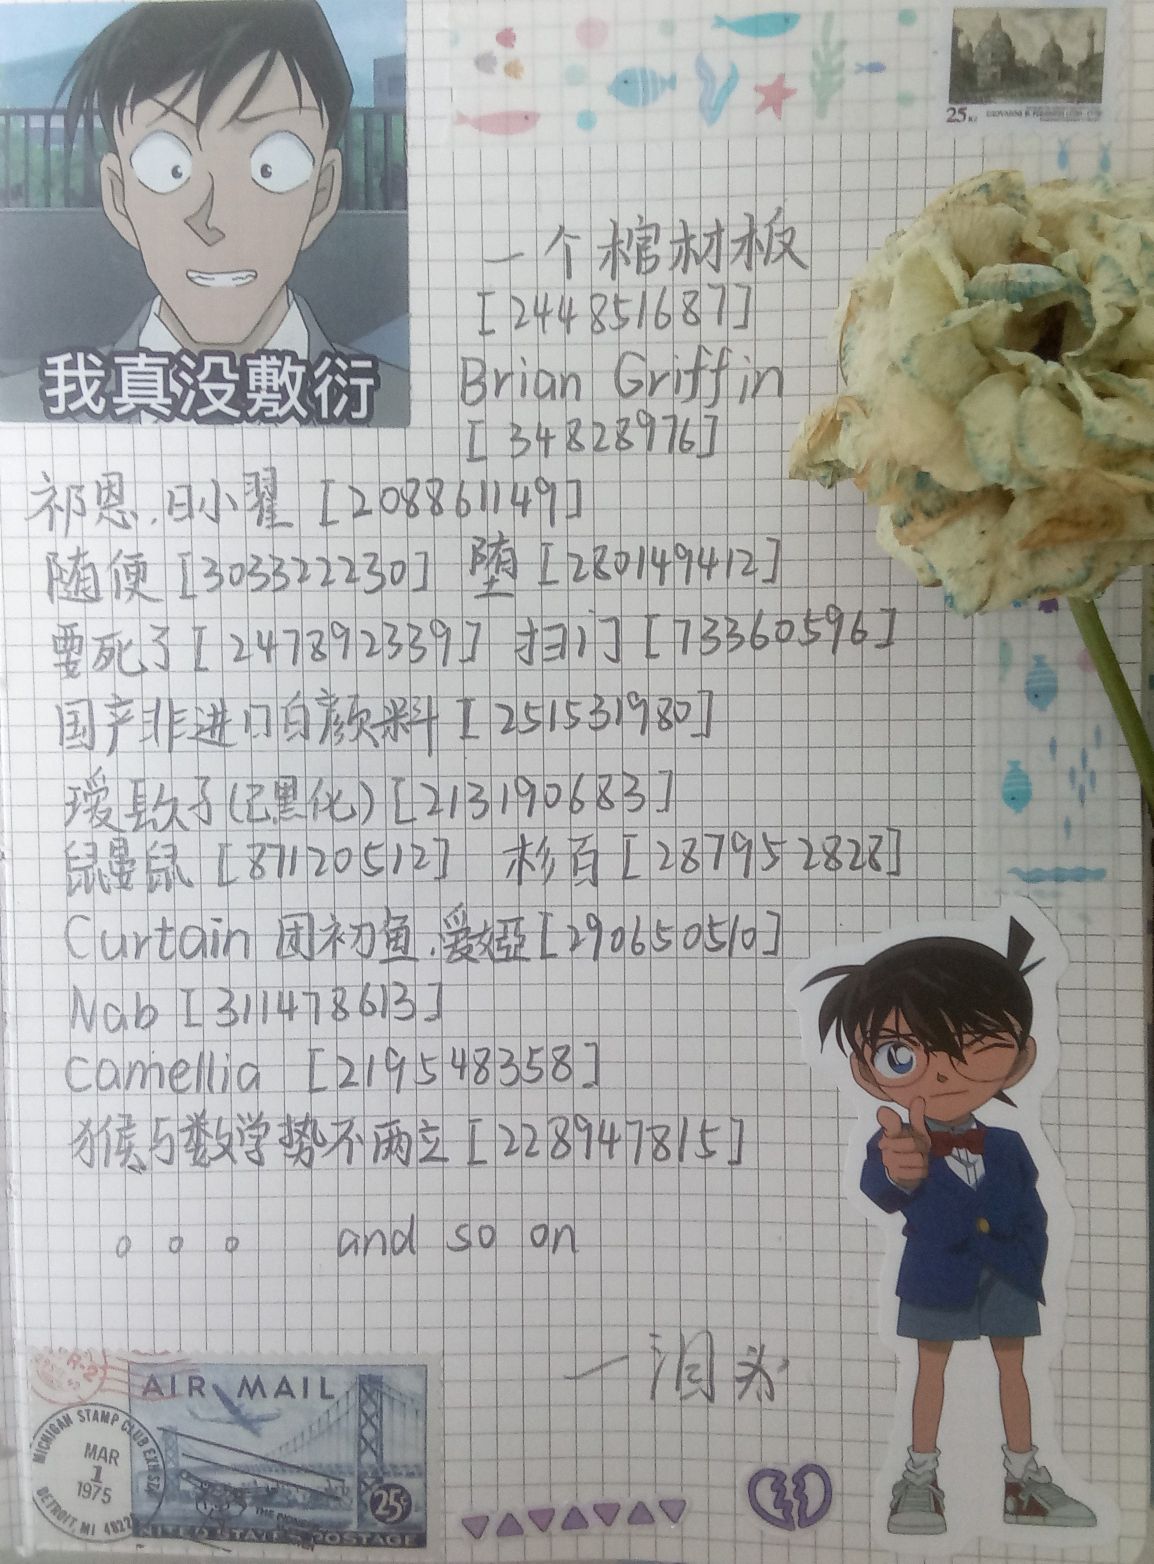 我真没敷衍
25 Kč
一个棺材板
[244851687]
Brian Griffin
[34828976]
祁恩.日小翟 [208861149]
随便 [303322230] 堕 [280149412]
要死了 [247892339] 扫门 [73360596]
国产非进口白颜料 [251531980]
子(已黑化) [213190683]
鼠曼鼠 [87120512] 杉百 [287952828]
Curtain 团初鱼.爱娅 [290650510]
Nab [311478613]
camellia [219548358]
猴与数学势不两立 [228947815]
。。。 and so on
一泪
AIR MAIL
MICHIGAN STAMP CLUB
MAR
1
1975
DETROIT, MI
25¢
UNITED STATES POSTAGE